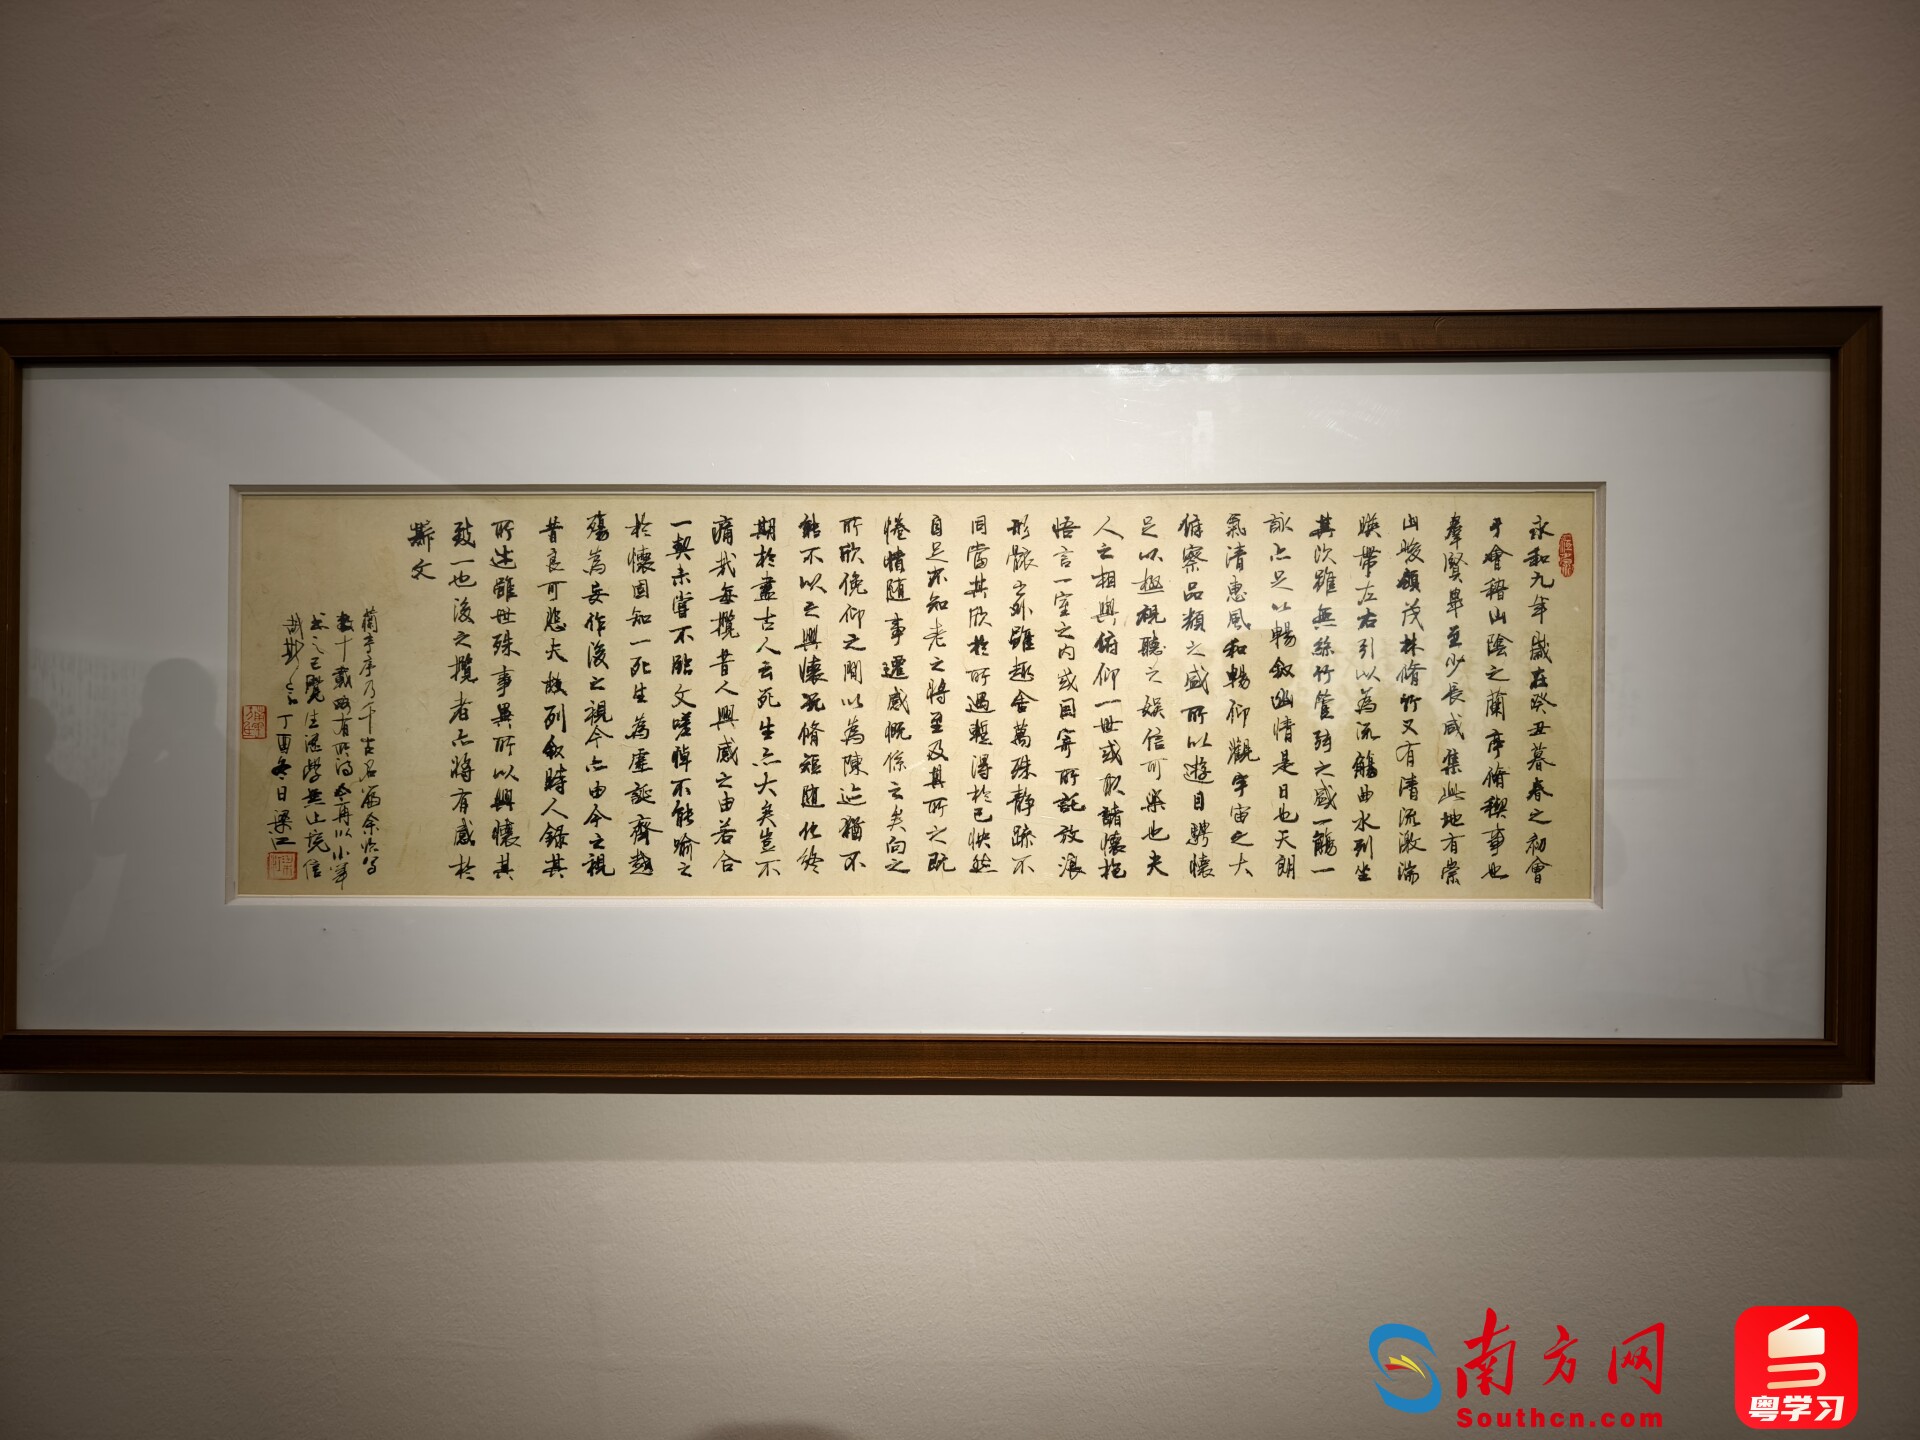 永和九年歲在癸丑暮春之初會
于會稽山陰之蘭亭脩稧事也
羣賢畢至少長咸集此地有崇
山峻領茂林脩竹又有清流激湍
暎帶左右引以為流觴曲水列坐
其次雖無絲竹管弦之盛一觴一
詠亦足以暢叙幽情是日也天朗
氣清惠風和暢仰觀宇宙之大
俯察品類之盛所以遊目騁懷
足以極視聽之娛信可樂也夫
人之相與俯仰一世或取諸懷抱
悟言一室之內或因寄所託放浪
形骸之外雖趣舍萬殊靜躁不
同當其欣於所遇蹔得於己怏然
自足不知老之將至及其所之既
惓情隨事遷感慨係之矣向之
所欣俛仰之閒以為陳迹猶不
能不以之興懷況脩短隨化終
期於盡古人云死生亦大矣豈不
痛哉每攬昔人興感之由若合
一契未嘗不臨文嗟悼不能喻之
於懷固知一死生為虛誕齊彭
殤為妄作後之視今亦由今之視
昔良可悲夫故列叙時人録其
所述雖世殊事異所以興懷其
致一也後之攬者亦將有感於
斯文
蘭亭序乃千古名篇余臨寫
數十載略有所得今再以小筆
書之已覺生澀學無止境信
哉斯言丁酉冬日梁江
南方网
Southcn.com
粤学习